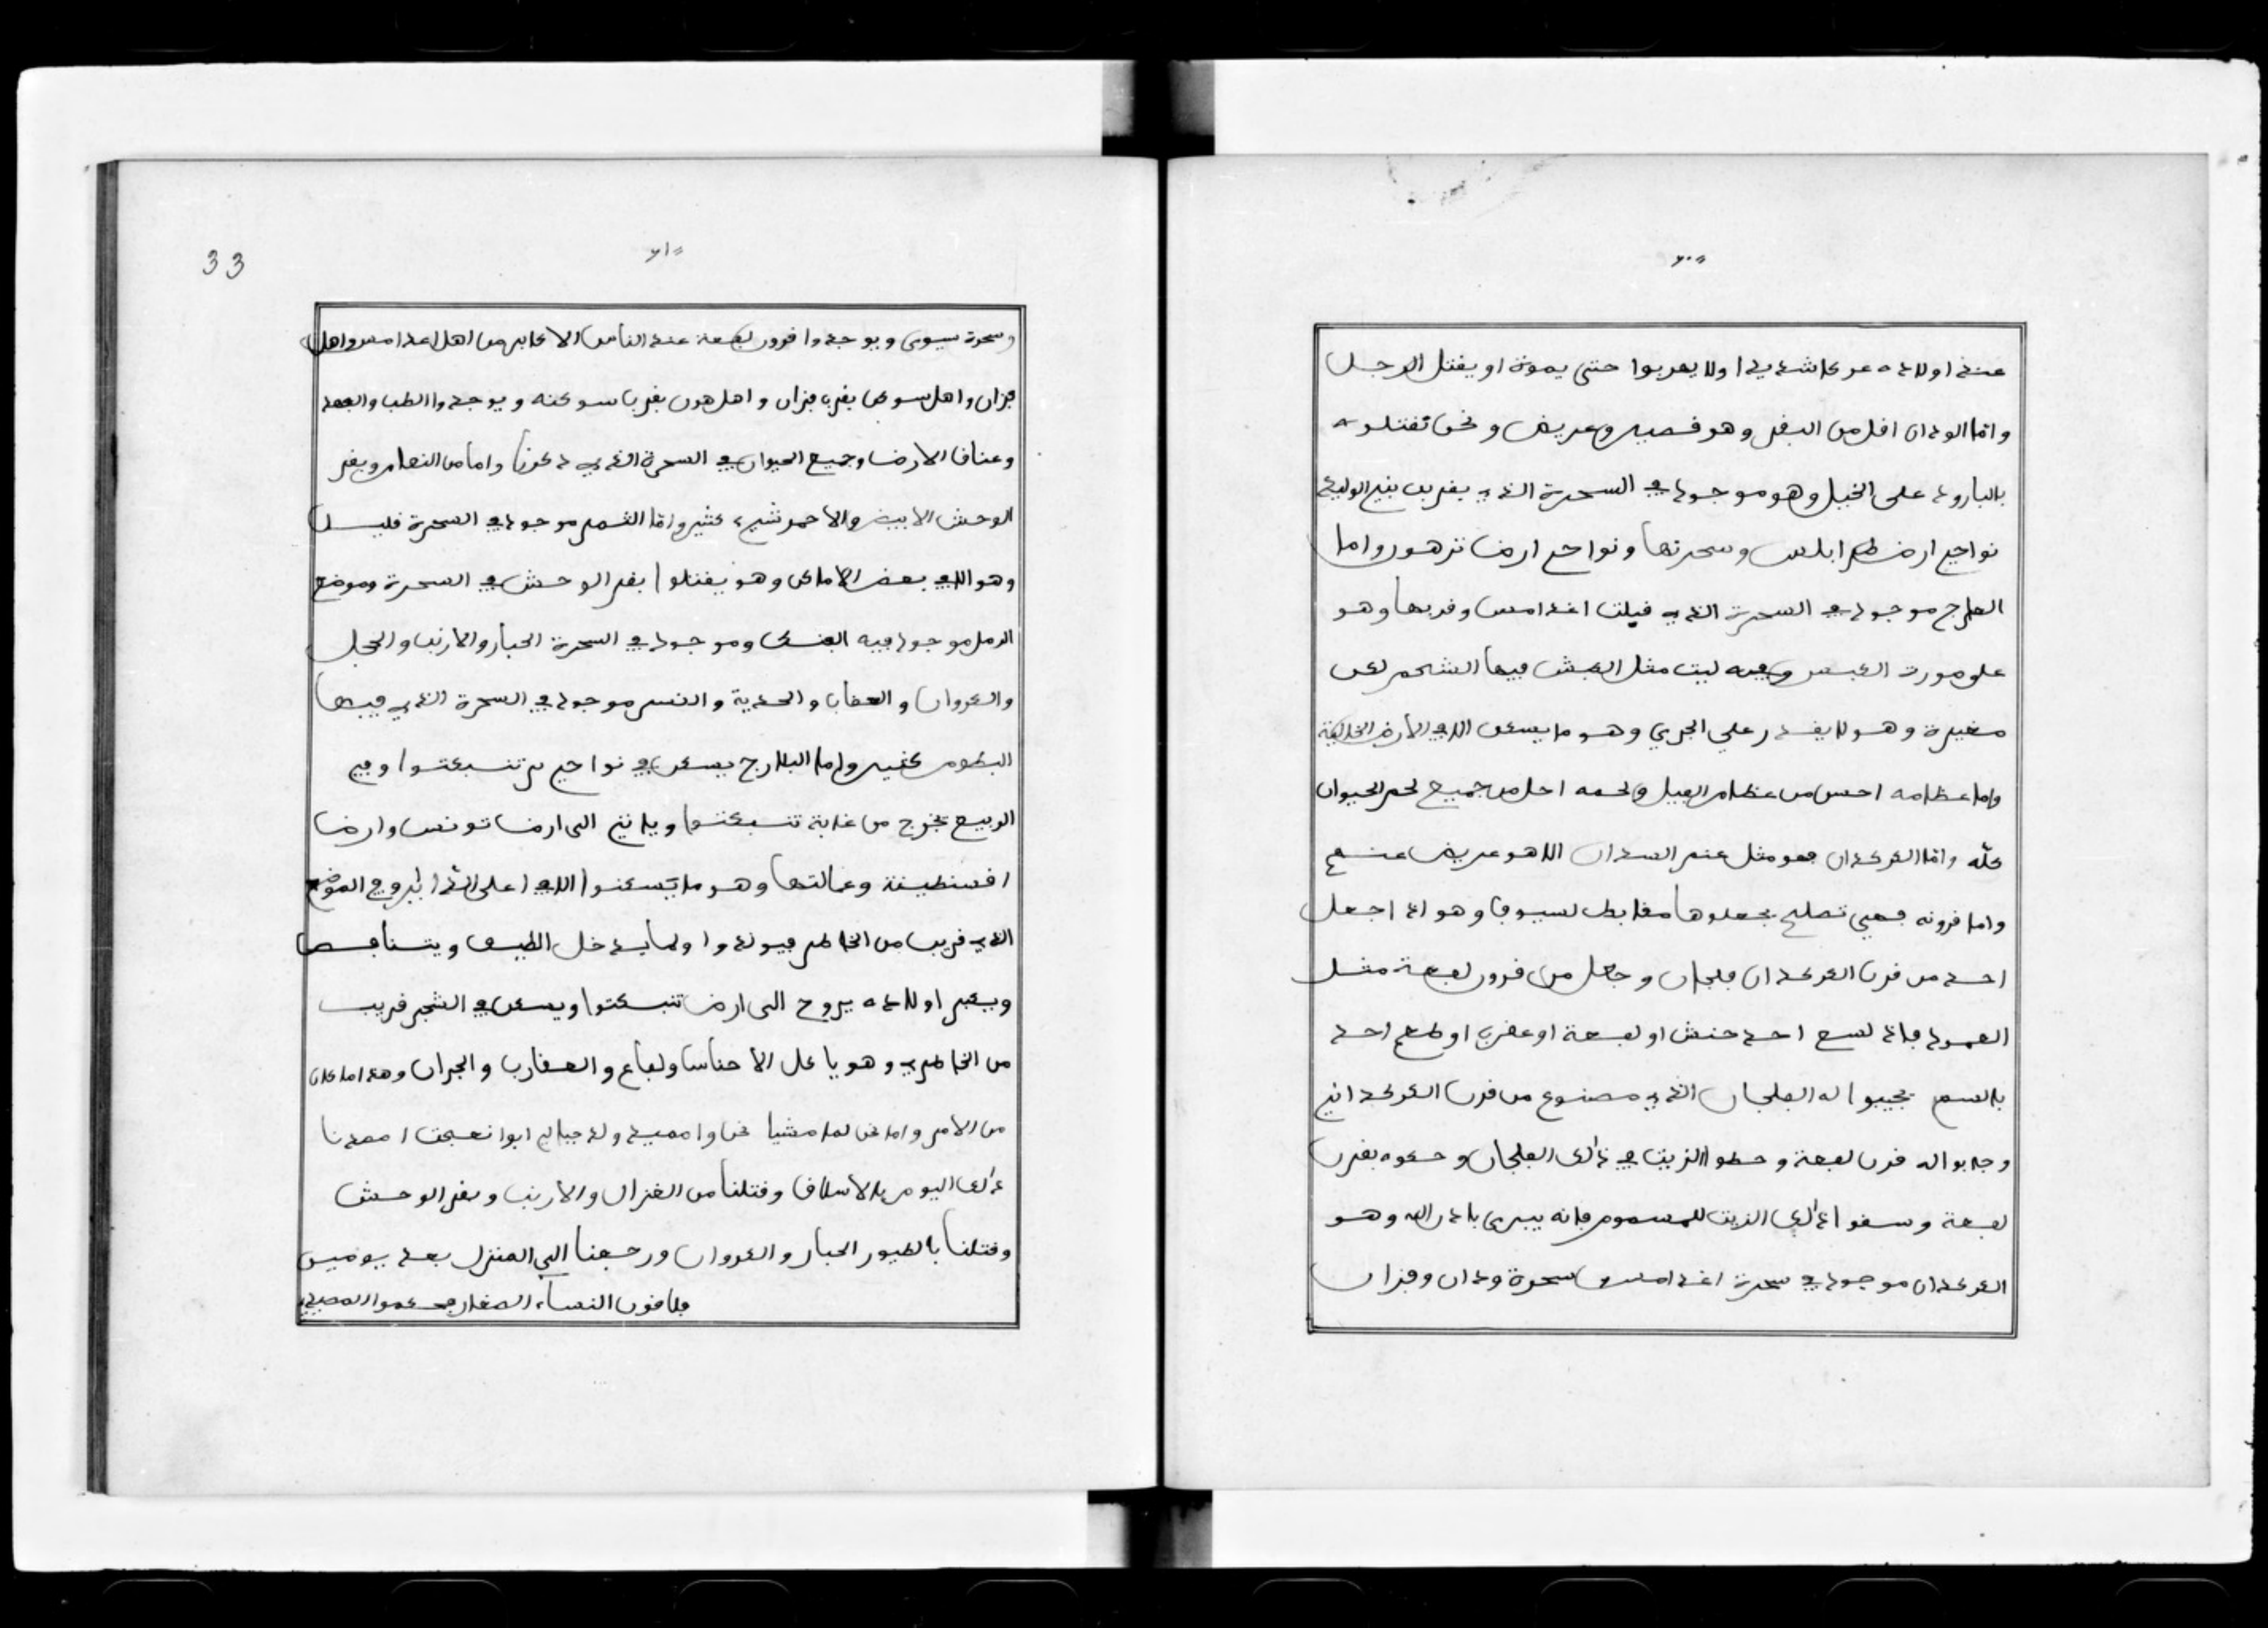 ٦٠
عند اولاده عركا شديدا ولا يهربوا حتى يموة او يقتل الرجل
واما الودان اقل من البقر وهو قصير وعريض ونحن نقتلوه
بالبارود على الخيل وهو موجود في السحرة الذي بقرب بني الوليد
نواحي ارض طرابلس وسحرتها ونواحي ارض ترهون واما
موجود في السحرة الذي قبلت اغدامس وقربها وهو
على صورت وعنده ليت مثل الكبش فيها الشحم لكن
صغيرة وهو لا يقدر على الجري وهو ما يسكن الا في الارض الخالية
واما عظامه احسن من عظام الفيل ولحمه احل من جميع لحم الحيوان
كله واما الكركدان فهو مثل عنم السدان الا هو عريض عنهم
واما قرونه فهي تصلح يجعلوها مقابط لسيوف وهو اذا اجعل
احد من قرن الكركدان فلجان وجعل من قرون لفعة مثل
العمود فاذا لسع احد حنش او لفعة او عقرب او طعم احد
بالسم يجيبوا له الفلجان الذي مصنوع من قرن الكركداني
وجابوا له قرن لفعة وحطوا الزيت في ذالك الفلجان وحكوه بقرن
لفعة وسقوا ذالك الزيت للمسموم فانه يبرى باذن الله وهو
الكركدان موجود في سحرة اغدامس وسحرة ودان وفزان
٦١
33
وسحرة سيوى ويوجدوا قرون لفعة عند الناس الاكابر من اهل اغدامس واهل
فزان واهل سوكن بقرب فزان واهل هون بقرب سوكنه ويوجدوا الطب والفهد
وعناق الارض وجميع الحيوان في السحرة الذي ذكرنا واما من النعام وبقر
الوحش الابيض والاحمر شيء كثير واما النمر موجود في السحرة قليل
وهو الا في بعض الاماكن وهو يقتلوا بقر الوحش في السحرة وموضع
الرمل موجود فيه الفنك وموجود في السحرة الحبار والارنب والحجل
والكروان والعقاب والحدية والنسر موجود في السحرة الذي فيها
البطوم كثير واما البلارج يسكن في نواحي بر تنبكتوا وفي
الربيع يخرج من غابة تنبكتوا وياتي الى ارض تونس وارض
اقسنطينة وعمالتها وهو ما يسكنوا الا في اعلى الذرا يروح الموضع
الذي قريب من الخاطر فيولدوا ولما يدخل الصيف
ويكبر اولاده يروح الى ارض تنبكتوا ويسكن في الشجر قريب
من الخاطري وهو ياكل الاحناش ولفاع والعقارب والجران وهذا ما كان
من الامر واما نحن لما مشينا نحن واصصيد ولد جبالي ابوا نعجت اصصدنا
ذالك اليوم بالاسلاق وقتلنا من الغزال والارنب وبقر الوحش
وقتلنا بالطيور الحبار والكروان ورجعنا الى المنزل بعد يومين
فلاقون النساء الصغار